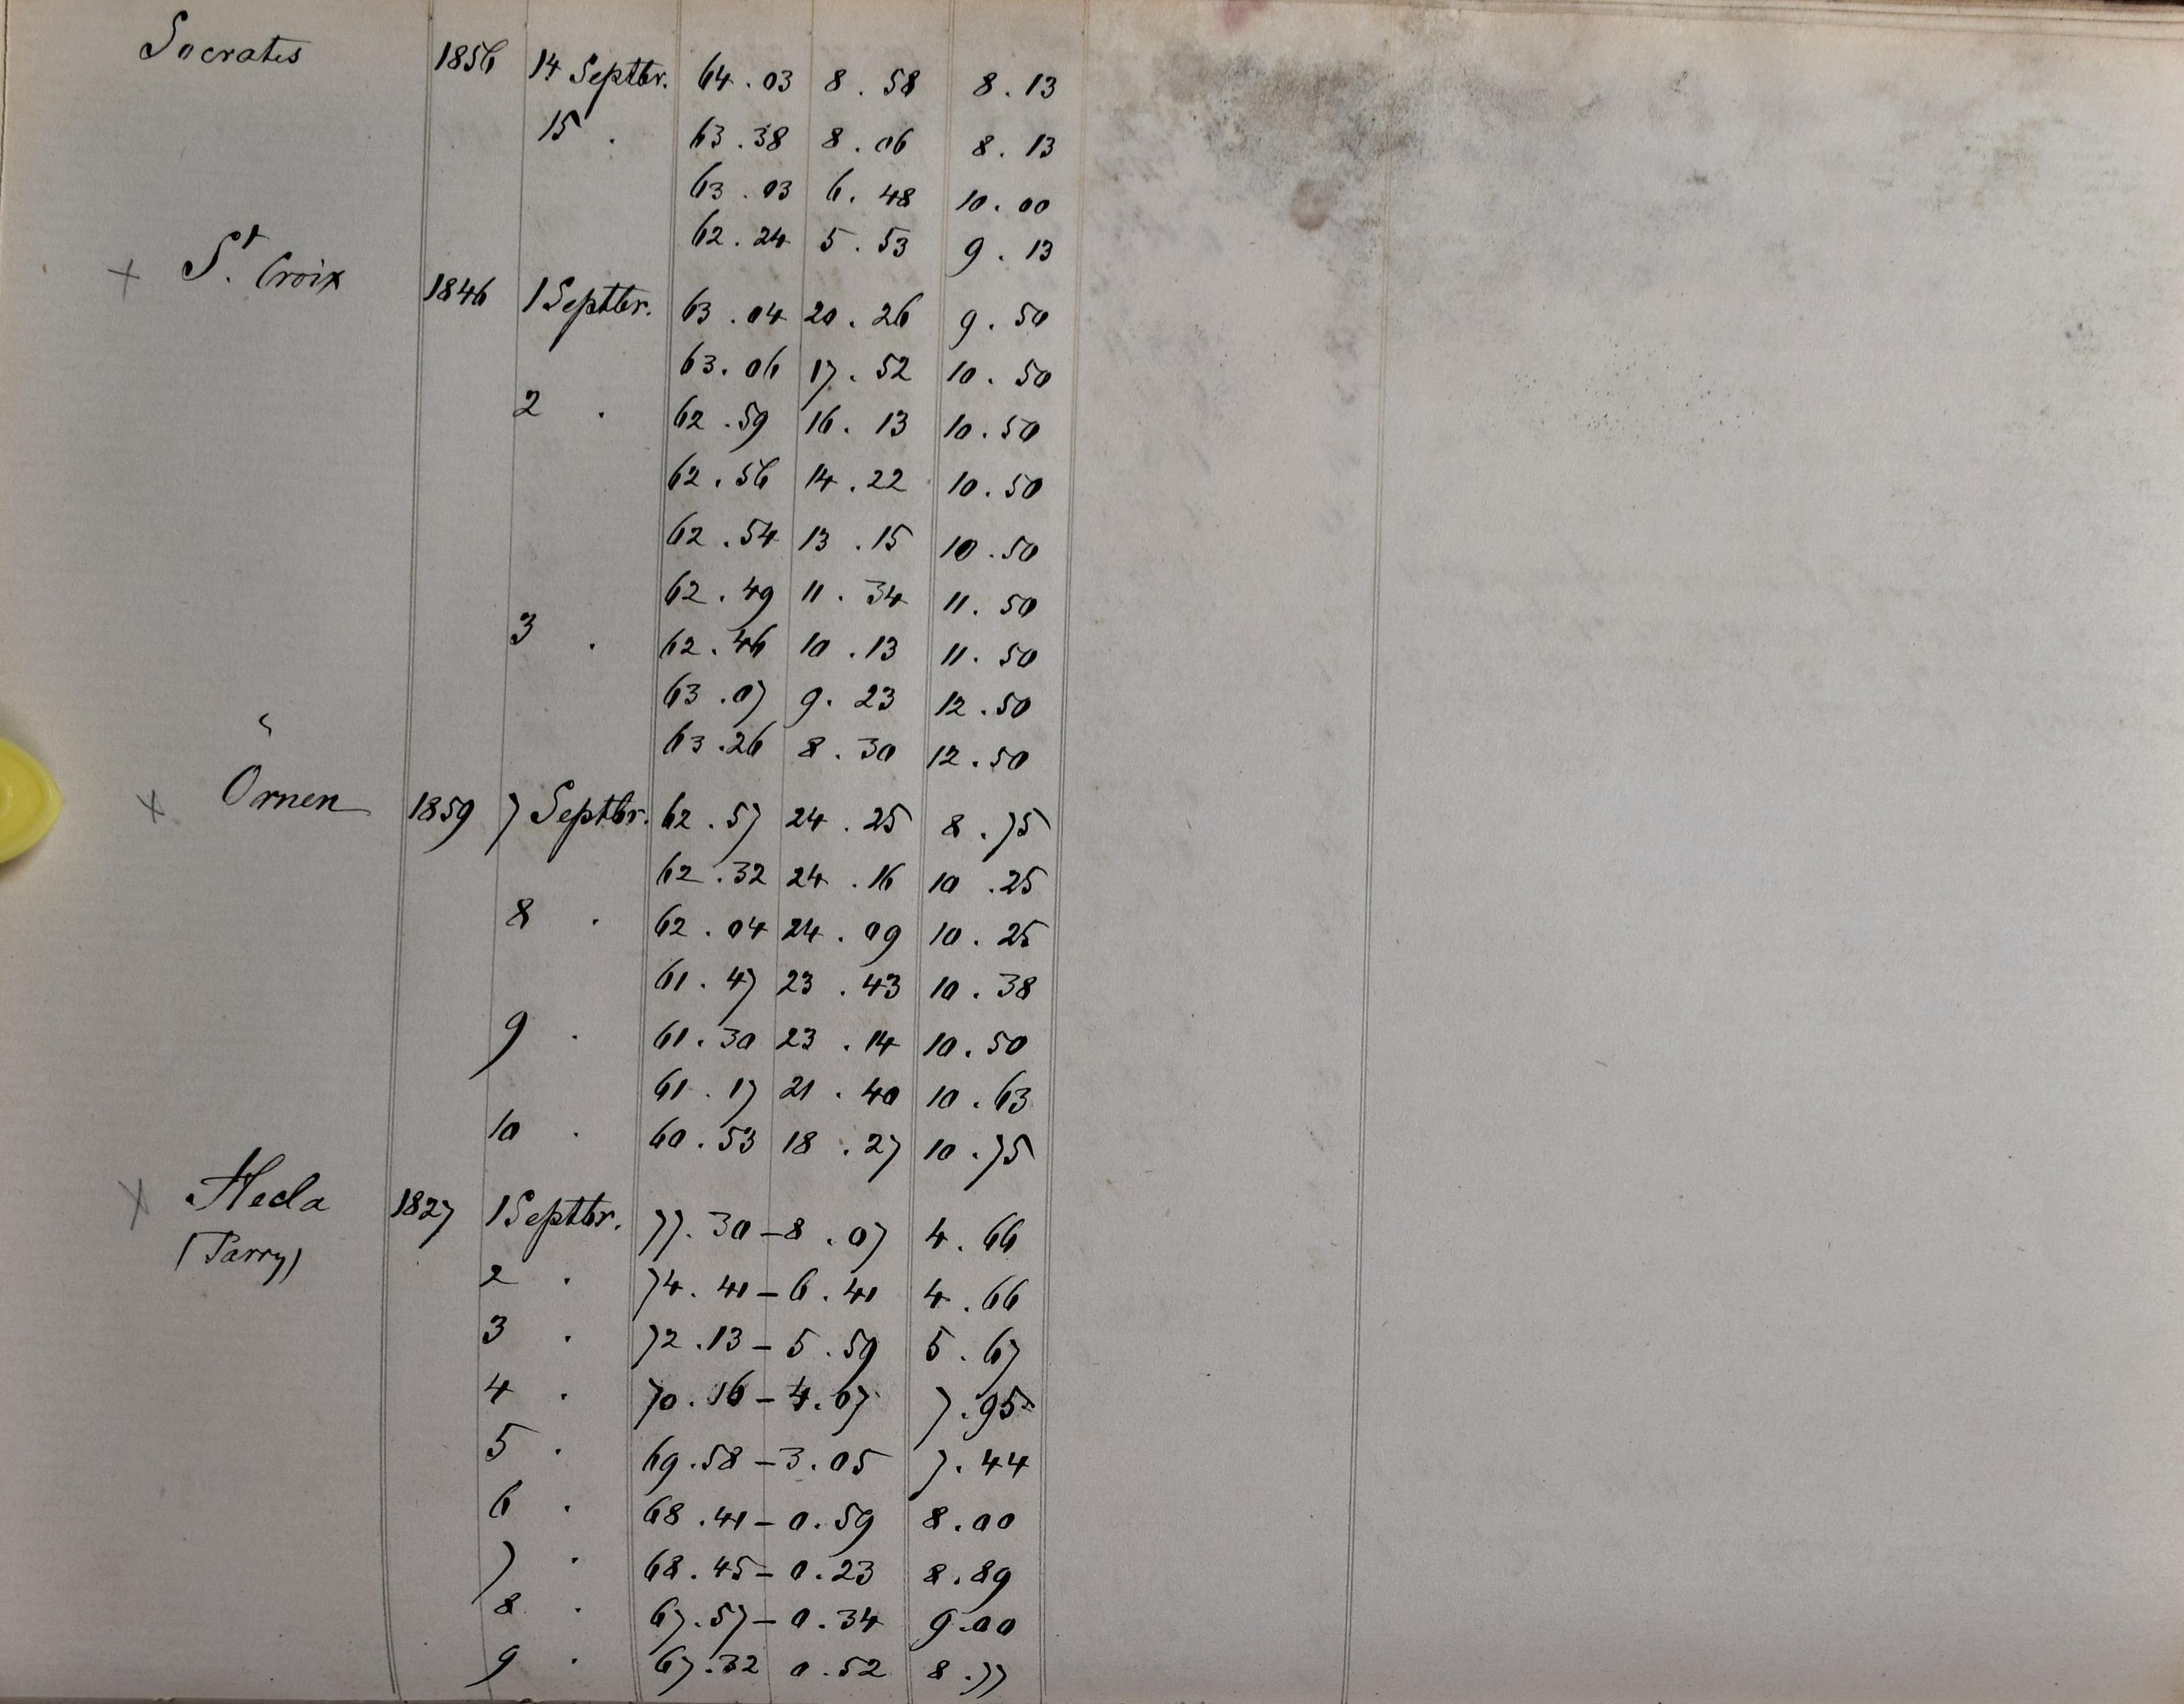 Socrates 1856 14 Septbr. 64.03 8.58 8.13
15 . 63.38 8.06 8.13
63.03 6.48 10.00
62.24 5.53 9.13
x St. Croix 1846 1 Septbr. 63.04 20.26 9.50
63.06 17.52 10.50
2 . 62.59 16.13 10.50
62.56 14.22 10.50
62.54 13.15 10.50
62.49 11.34 11.50
3 . 62.46 10.13 11.50
63.07 9.23 12.50
63.26 8.30 12.50
x Ornen 1859 7 Septbr. 62.57 24.25 8.75
62.32 24.16 10.25
8 . 62.04 24.09 10.25
61.47 23.43 10.38
9 . 61.30 23.14 10.50
61.17 21.40 10.63
10 . 60.53 18.27 10.75
x Hecla 1827 1 Septbr. 77.30 – 8.07 4.66
(Parry) 2 . 74.41 – 6.41 4.66
3 . 72.13 – 5.59 5.67
4 . 70.16 – 4.07 7.95
5 . 69.58 – 3.05 7.44
6 . 68.41 – 0.59 8.00
7 . 68.45 – 0.23 8.89
8 . 67.57 – 0.34 9.00
9 . 67.32 0.52 8.77